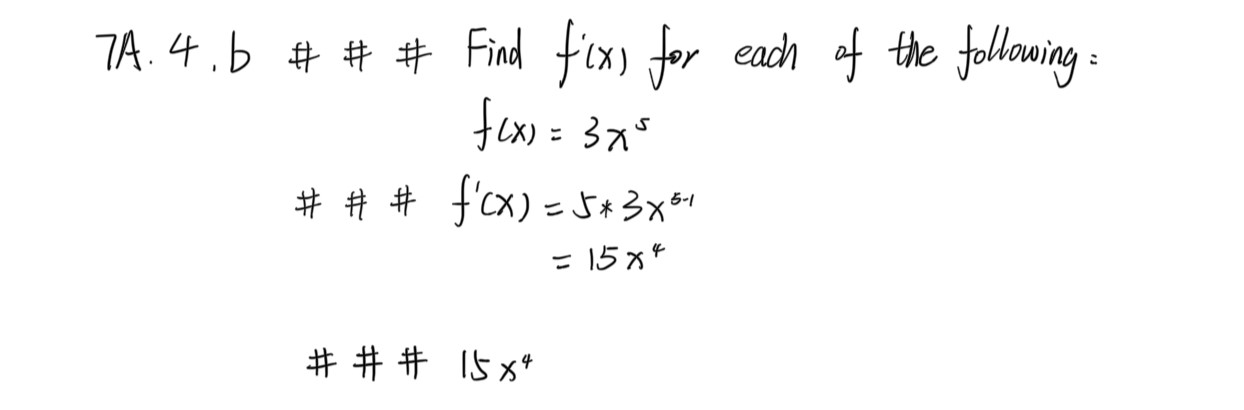 7A. 4. b # # # Find f'(x) for each of the following:
f(x) = 3x⁵
# # # f'(x) = 5*3x⁵⁻¹
= 15x⁴
# # # 15x⁴